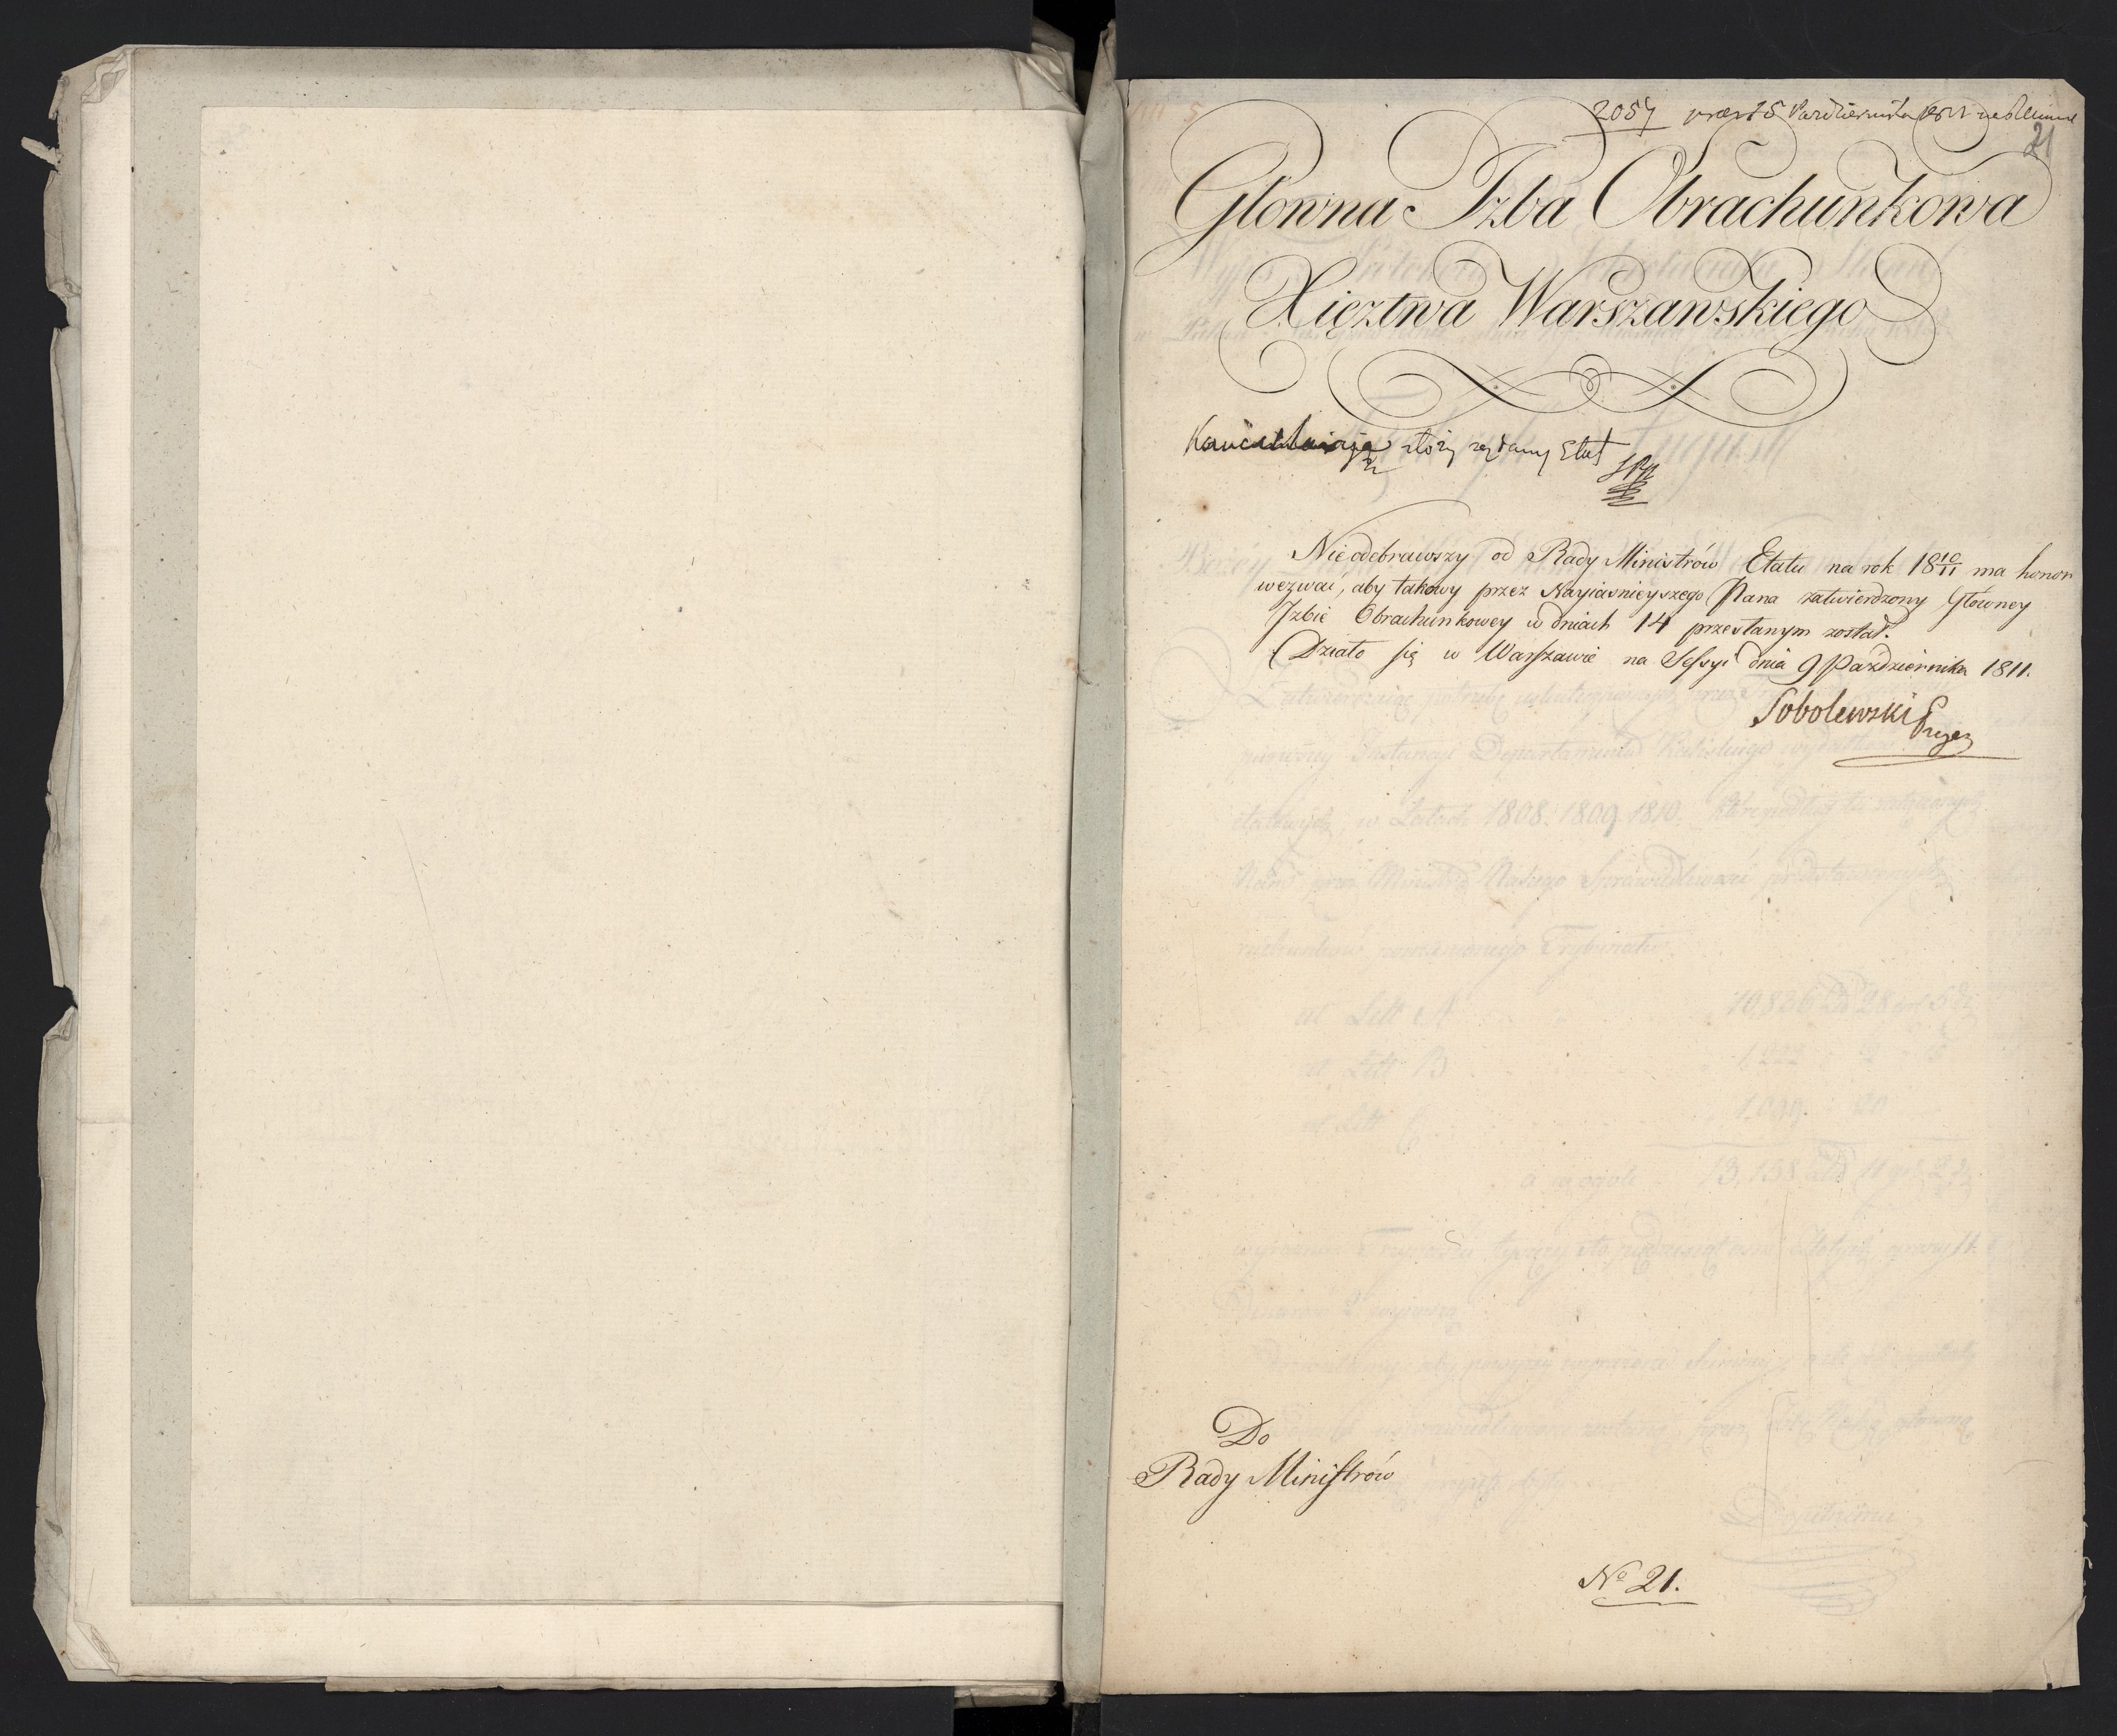 2057 15 Października 1811
21
Główna Izba Obrachunkowa
Xięztwa Warszawskiego
złoży żądany Etat
Nieodebrawszy od Rady Ministrów Etatu na rok 18 10/11 ma honor
wezwać, aby takowy przez Nayiaśnieyszego Pana zatwierdzony Główney
Izbie Obrachunkowey w dniach 14 przesłanym został.
Działo się w Warszawie na Sessyi dnia 9 Października 1811.
Sobolewski Prezes
Do
Rady Ministrów
No 21.